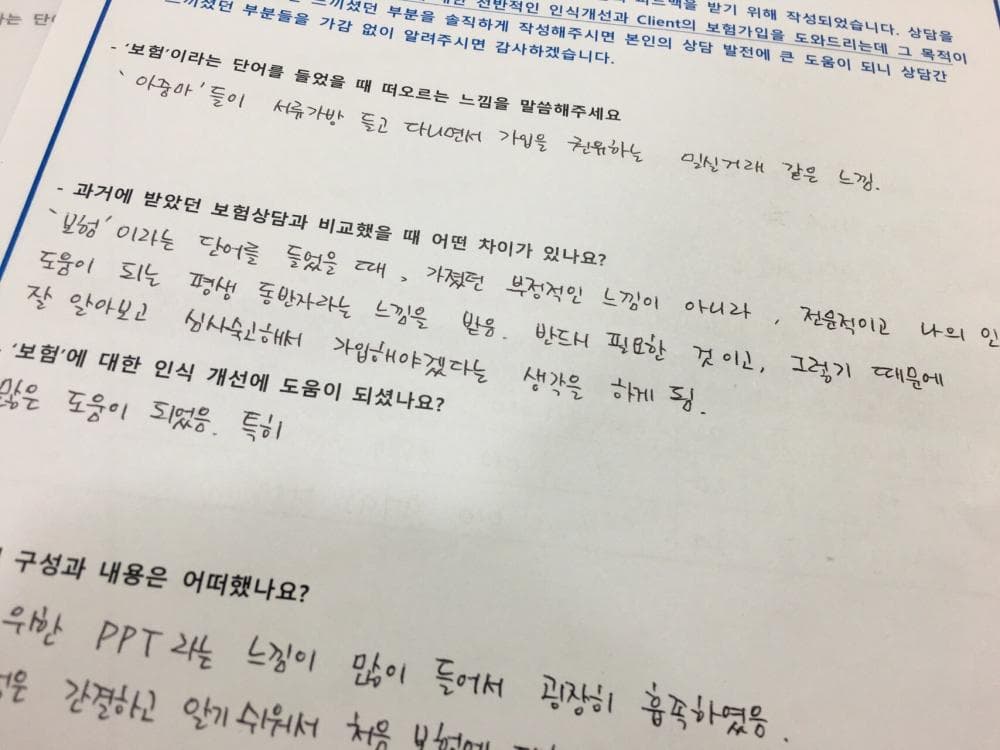 는 단
전반적인 인식개선과 Client의 보험가입을 도와드리는데 그 목적이
받기 위해 작성되었습니다. 상담을
느끼셨던 부분을 솔직하게 작성해주시면 본인의 상담 발전에 큰 도움이 되니 상담간
느끼셨던 부분들을 가감 없이 알려주시면 감사하겠습니다.
- '보험'이라는 단어를 들었을 때 떠오르는 느낌을 말씀해주세요
'아줌마'들이 서류가방 들고 다니면서 가입을 권유하는 밀실거래 같은 느낌.
- 과거에 받았던 보험상담과 비교했을 때 어떤 차이가 있나요?
'보험'이라는 단어를 들었을 때, 가졌던 부정적인 느낌이 아니라, 전문적이고 나의 인
도움이 되는 평생 동반자라는 느낌을 받음. 반드시 필요한 것이고, 그렇기 때문에
잘 알아보고 심사숙고해서 가입해야겠다는 생각을 하게 됨.
- '보험'에 대한 인식 개선에 도움이 되셨나요?
많은 도움이 되었음. 특히
구성과 내용은 어떠했나요?
위한 PPT라는 느낌이 많이 들어서 굉장히 흡족하였음.
간결하고 알기 쉬워서 처음 보험에